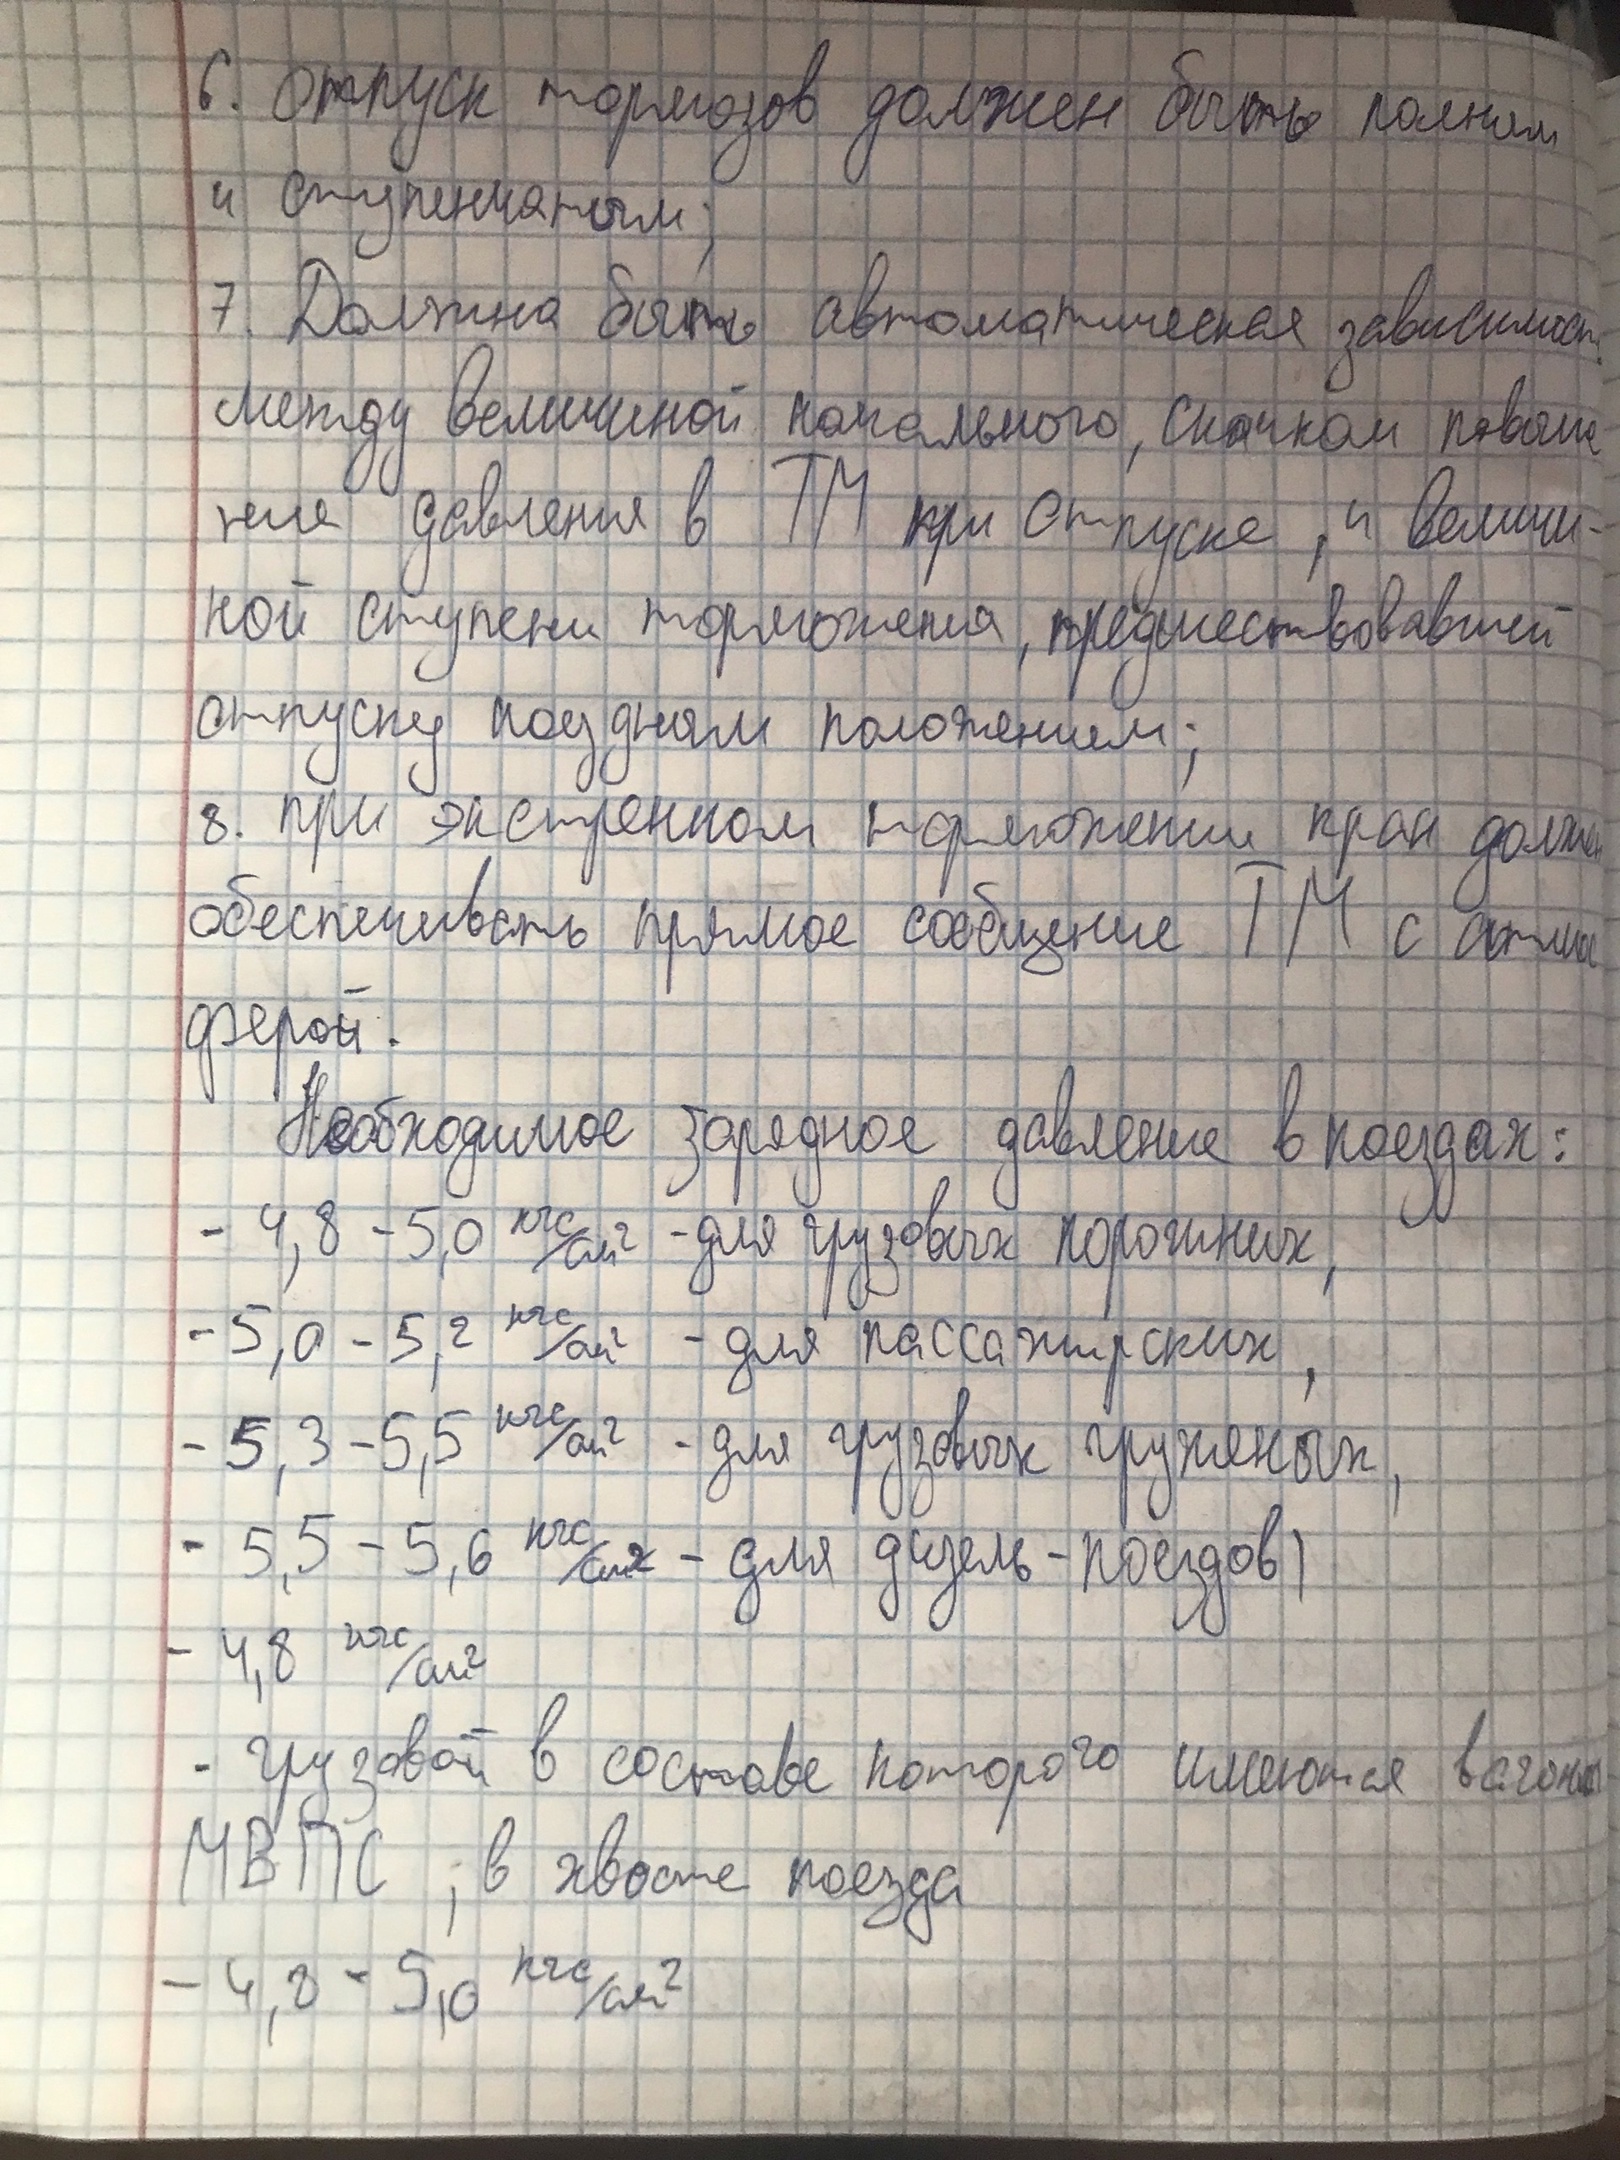 6. отпуск тормозов должен быть полным
и ступенчатым;
7. Должна быть автоматическая зависимость
между величиной начального, скачком повыше
ния давления в ТМ при отпуске, и величи-
ной ступени торможения, предшествовавшей
отпуску поездным положением;
8. при экстренном торможении кран должен
обеспечивать прямое сообщение ТМ с атмос
ферой.
Необходимое зарядное давление в поездах:
- 4,8 - 5,0 кгс/см² - для грузовых порожних,
- 5,0 - 5,2 кгс/см² - для пассажирских,
- 5,3 - 5,5 кгс/см² - для грузовых груженых,
- 5,5 - 5,6 кгс/см² - для дизель-поездов)
- 4,8 кгс/см²
- грузовой в составе которого имеются вагоны
МВПС ; в хвосте поезда
- 4,8 - 5,0 кгс/см²